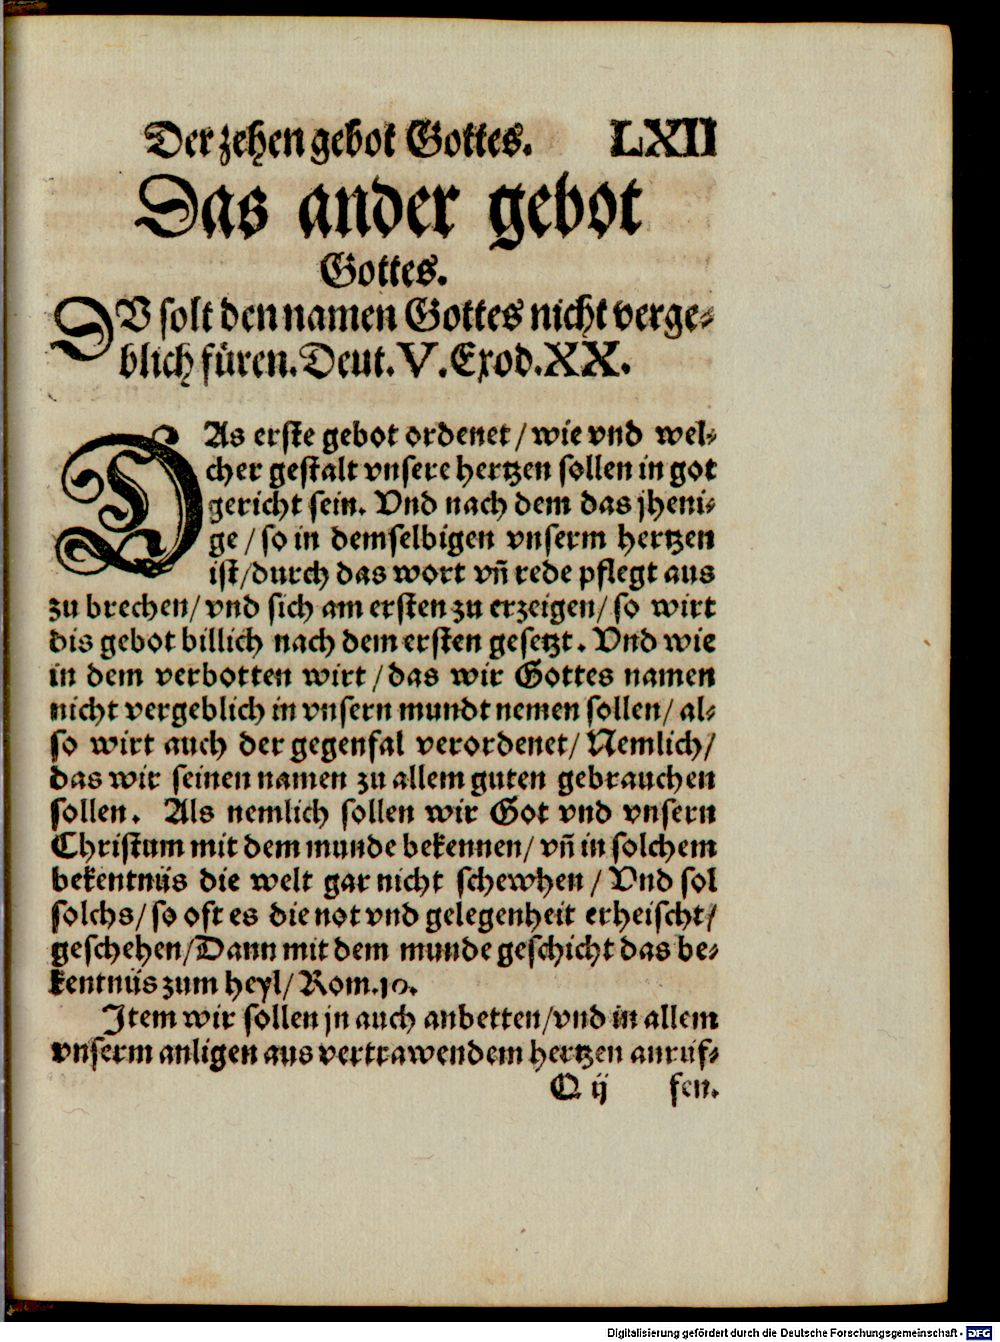 Der zehen gebot Gottes. LXII
Das ander gebot
Gottes.
DV solt den namen Gottes nicht verge⸗
blich füren. Deut. V. Exod. XX.
DAs erste gebot ordenet / wie vnd wel⸗
cher gestalt vnsere hertzen sollen in got
gericht sein. Vnd nach dem das jheni⸗
ge / so in demselbigen vnserm hertzen
ist / durch das wort vñ rede pflegt aus
zu brechen / vnd sich am ersten zu erzeigen / so wirt
dis gebot billich nach dem ersten gesetzt. Vnd wie
in dem verbotten wirt / das wir Gottes namen
nicht vergeblich in vnsern mundt nemen sollen / al⸗
so wirt auch der gegenfal verordenet / Nemlich /
das wir seinen namen zu allem guten gebrauchen
sollen. Als nemlich sollen wir Got vnd vnsern
Christum mit dem munde bekennen / vñ in solchem
bekentniis die welt gar nicht schewhen / Vnd sol
solchs / so oft es die not vnd gelegenheit erheischt /
geschehen / Dann mit dem munde geschicht das be⸗
kentniis zum heyl / Rom. 10.
Item wir sollen jn auch anbetten / vnd in allem
vnserm anligen aus vertrawendem hertzen anruf⸗
Q ij fen.
Digitalisierung gefördert durch die Deutsche Forschungsgemeinschaft - DFG